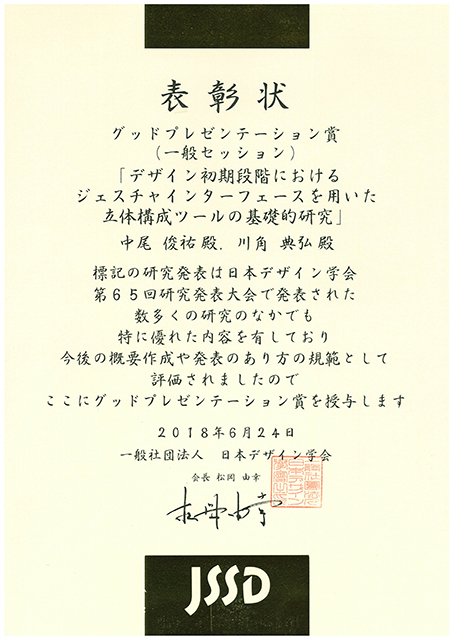 表彰状
グッドプレゼンテーション賞
(一般セッション)
「デザイン初期段階における
ジェスチャインターフェースを用いた
立体構成ツールの基礎的研究」
中尾 俊祐 殿. 川角 典弘 殿
標記の研究発表は日本デザイン学会
第65回研究発表大会で発表された
数多くの研究のなかでも
特に優れた内容を有しており
今後の概要作成や発表のあり方の規範として
評価されましたので
ここにグッドプレゼンテーション賞を授与します
2018年6月24日
一般社団法人 日本デザイン学会
会長 松岡 由幸
松岡由幸
JSSD